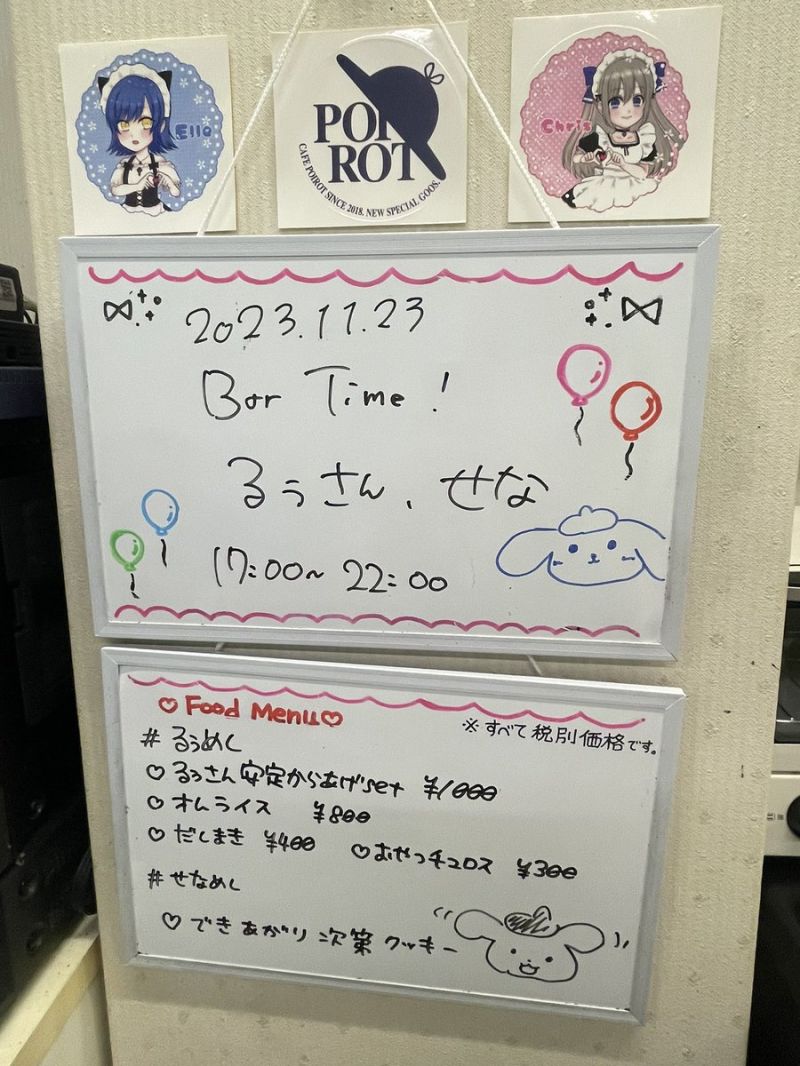 Ella
POI
ROT
CAFE POIROT SINCE 2018. NEW SPECIAL GOOS.
Chris
2023.11.23
Bar Time!
るぅさん、せな
17:00~ 22:00
♡Food Menu♡
※すべて税別価格です。
#るぅめし
♡るぅさん安定からあげset ¥1000
♡オムライス ¥800
♡だしまき ¥400 ♡おやつチュロス ¥300
#せなめし
♡できあがり次第クッキー